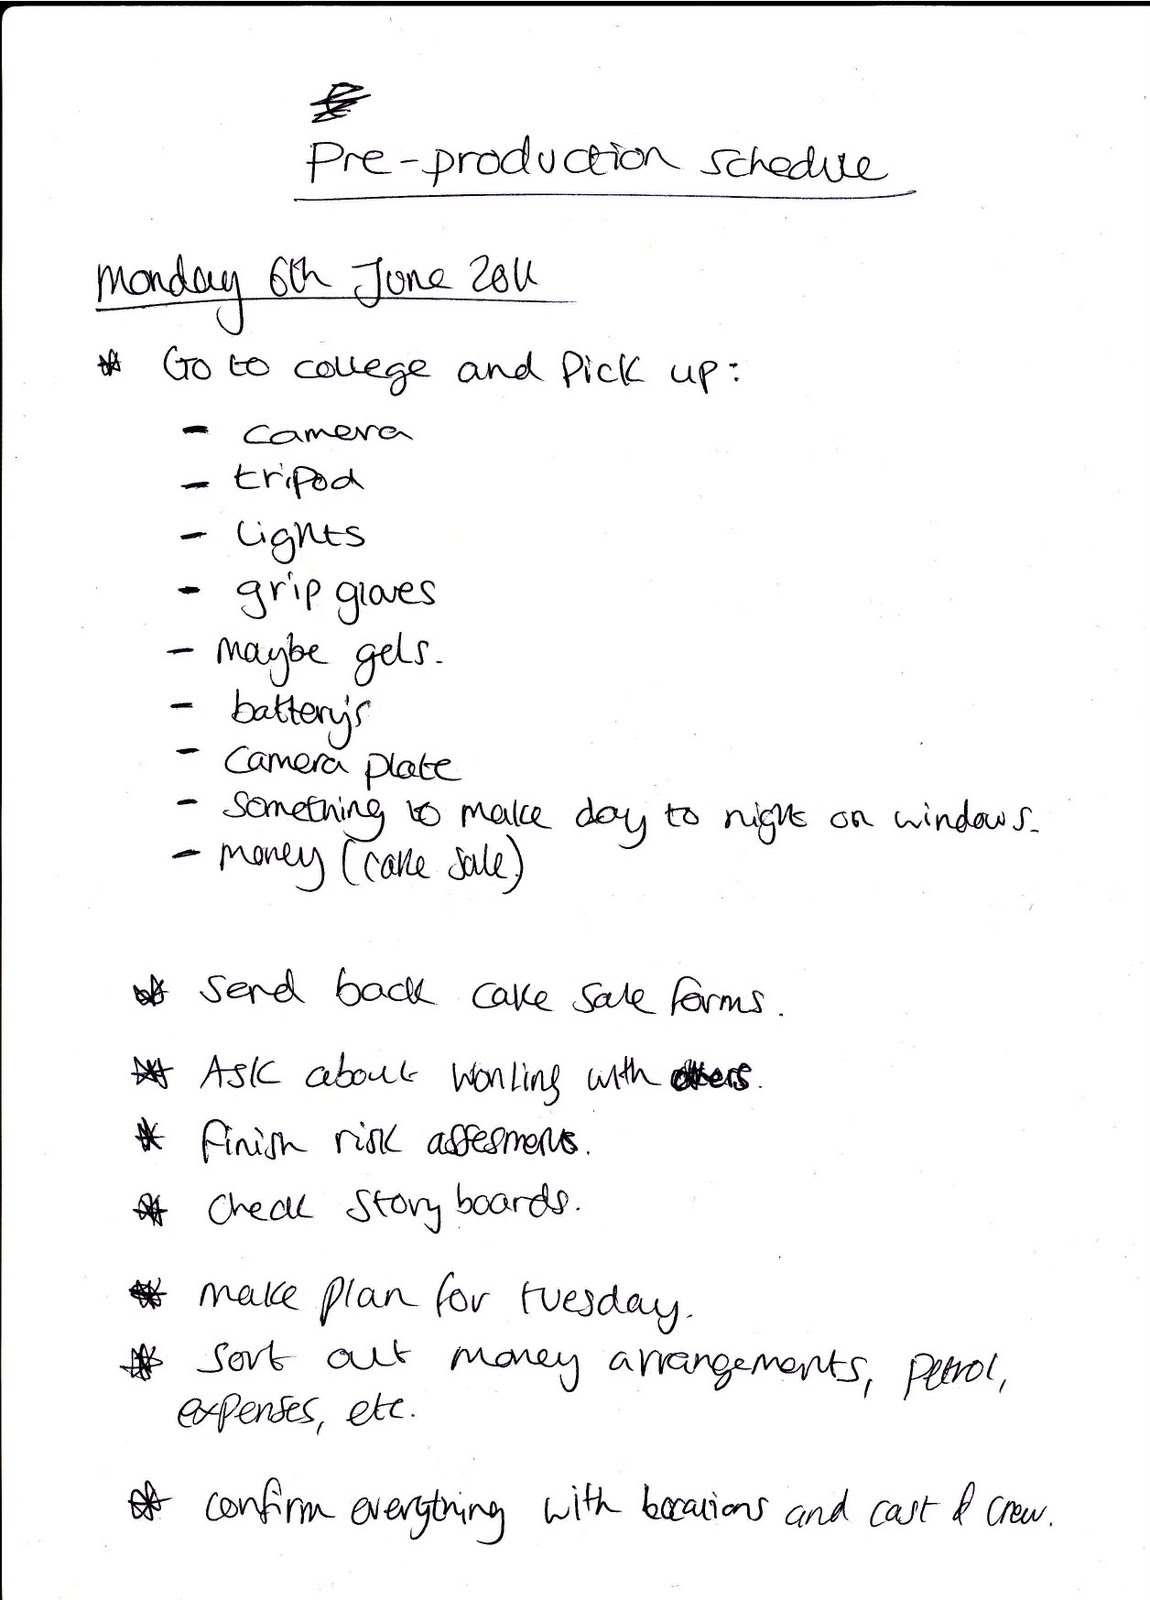 Pre-production schedule
Monday 6th June 2011
* Go to college and Pick up:
- camera
- tripod
- Lights
- grip gloves
- maybe gels.
- battery's
- camera plate
- something to make day to night on windows.
- money (cake sale)
* Send back cake sale forms.
* Ask about working with others.
* finish risk assesments.
* check story boards.
* make plan for tuesday.
* sort out money arrangements, petrol,
expenses, etc.
* confirm everything with locations and cast & crew.